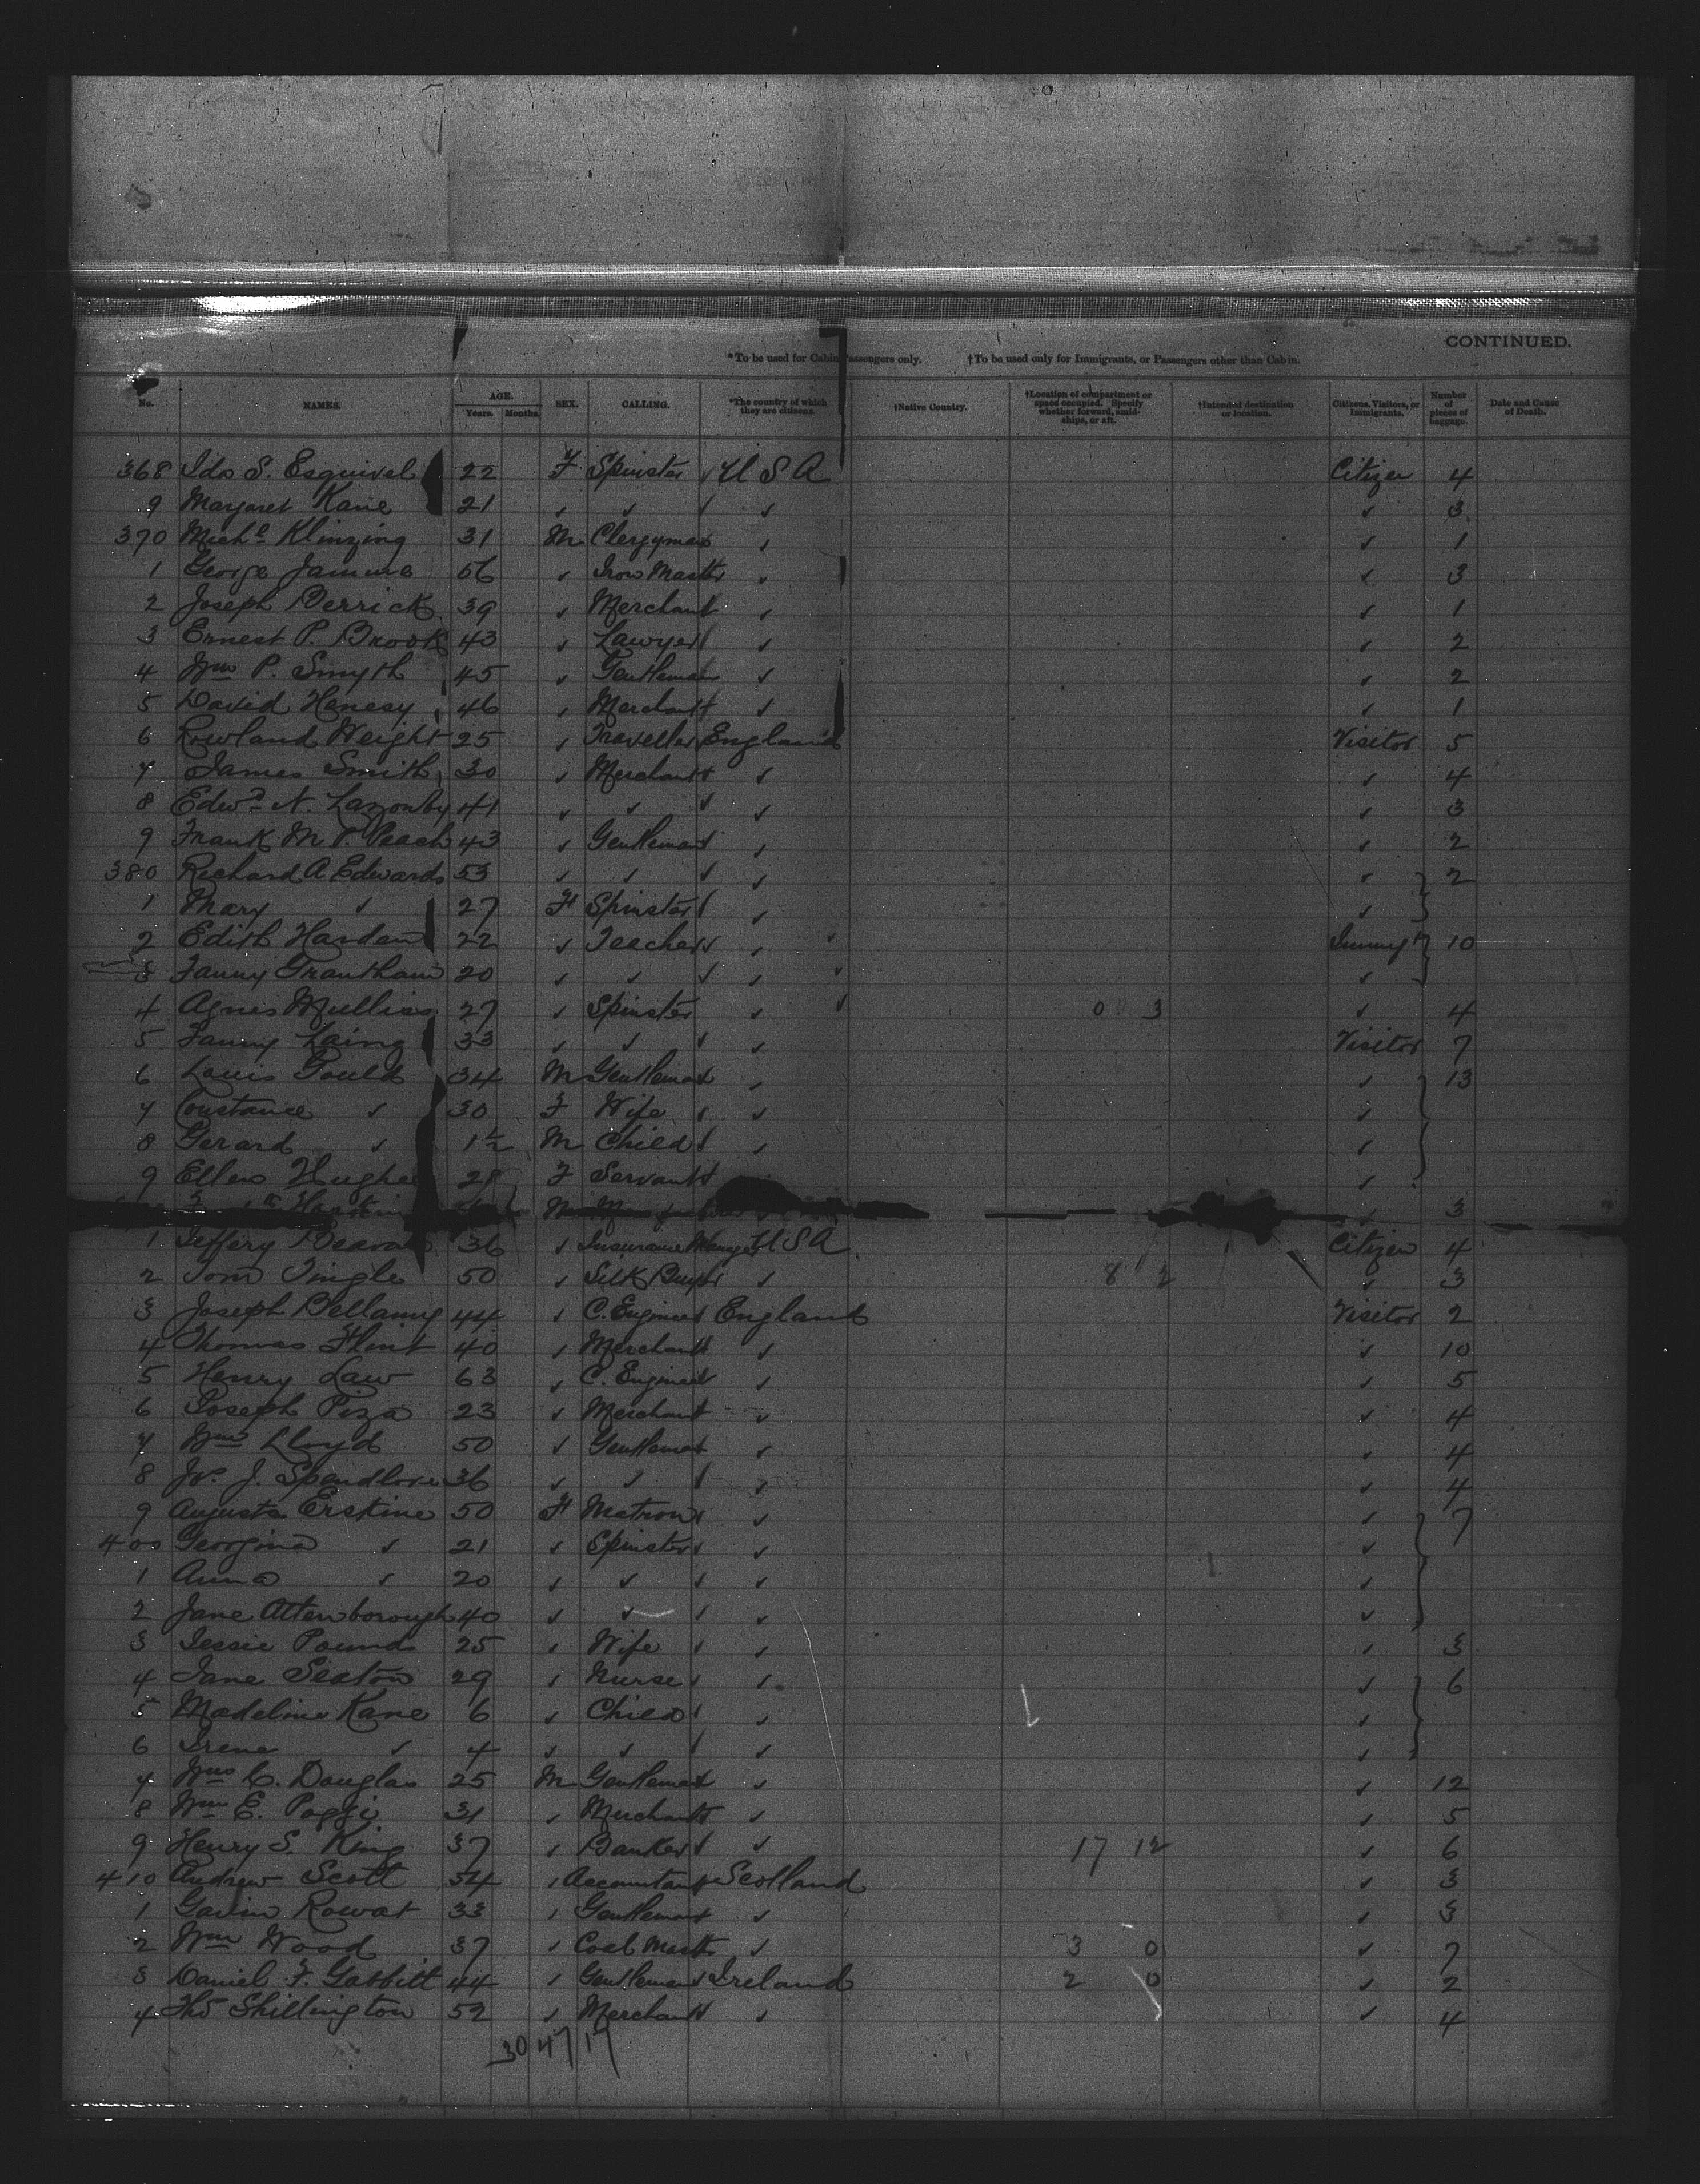 CONTINUED.
*To be used for Cabin Passengers only. †To be used only for Immigrants, or Passengers other than Cabin.
No. NAMES. AGE. Years. Months. SEX. CALLING. *The country of which they are citizens. †Native Country. †Location of compartment or space occupied. Specify whether forward, amidships, or aft. †Intended destination or location. Citizens, Visitors, or Immigrants. Number of pieces of baggage. Date and Cause of Death.
368 Ida S. Esquivel 22 F Spinster U S A Citizen 4
9 Margaret Kane 21 ✓ ✓ ✓ ✓ 3
370 Michl Klinzing 31 M Clergyman ✓ ✓ 1
1 George 56 ✓ Iron Mastr ✓ ✓ 3
2 Joseph Derrick 39 ✓ Merchant ✓ ✓ 1
3 Ernest P. Brook 43 ✓ Lawyer ✓ ✓ 2
4 Wm P. Smyth 45 ✓ Gentleman ✓ ✓ 2
5 David Henesy 46 ✓ Merchant ✓ ✓ 1
6 Rowland Weight 25 ✓ Traveller England Visitor 5
7 James Smith 30 ✓ Merchant ✓ ✓ 4
8 Edwd N. Lazonby 41 ✓ ✓ ✓ ✓ 3
9 Frank M. P. Peach 43 ✓ Gentleman ✓ ✓ 2
380 Richard A Edwards 53 ✓ ✓ ✓ ✓ 2
1 Mary ✓ 27 F Spinster ✓ ✓
2 Edith Harden 22 ✓ Teacher ✓ Immigt 10
3 Fanny Grantham 20 ✓ ✓ ✓ ✓
4 Agnes Mullins 27 ✓ Spinster ✓ 0 3 ✓ 4
5 Fanny Laing 33 ✓ ✓ ✓ Visitor 7
6 Louis Gould 34 M Gentleman ✓ ✓ 13
7 Constance ✓ 30 F Wife ✓ ✓
8 Gerard ✓ 1½ M Child ✓ ✓
9 Ellen Hughes 28 F Servant ✓
M ✓ 3
1 Jeffery 36 ✓ Insurance Manger U S A Citizen 4
2 Tom Tingle 50 ✓ Silk Buyer ✓ 8 2 ✓ 3
3 Joseph Bellamy 44 ✓ C. Engineer England Visitor 2
4 Thomas Flint 40 ✓ Merchant ✓ ✓ 10
5 Henry Law 63 ✓ C. Engineer ✓ ✓ 5
6 Joseph Piza 23 ✓ Merchant ✓ ✓ 4
7 Wm Lloyd 50 ✓ Gentleman ✓ ✓ 4
8 J. Spendlove 36 ✓ ✓ ✓ ✓ 4
9 Augusta Erskine 50 F Matron ✓ ✓ 7
400 Georgina ✓ 21 ✓ Spinster ✓ ✓
1 Anna ✓ 20 ✓ ✓ ✓ ✓
2 Jane Attenborough 40 ✓ ✓ ✓ ✓
3 Jessie Pound 25 ✓ Wife ✓ ✓ 3
4 Jane Seaton 29 ✓ Nurse ✓ ✓ 6
5 Madeline Kane 6 ✓ Child ✓ ✓
6 Irene ✓ 4 ✓ ✓ ✓ ✓
7 Wm C. Douglas 25 M Gentleman ✓ ✓ 12
8 Wm E. Poggi 31 ✓ Merchant ✓ ✓ 5
9 Henry S. King 37 ✓ Banker ✓ 17 12 ✓ 6
410 Andrew Scott 54 ✓ Accountant Scotland ✓ 3
1 Gavin Rowat 33 ✓ Gentleman ✓ ✓ 3
2 Wm Wood 37 ✓ Coal Mastr ✓ 3 0 ✓ 7
3 Daniel F. Gabbitt 44 ✓ Gentleman Ireland 2 0 ✓ 2
4 Thos Shillington 52 ✓ Merchant ✓ ✓ 4
30 47 17